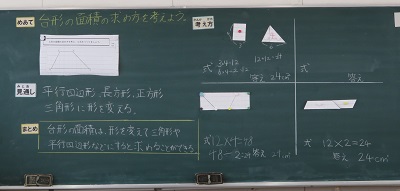 めあて 台形の面積の求め方を考えよう。
見通し
平行四辺形、長方形、正方形
三角形に形を変える。
まとめ
台形の面積は、形を変えて三角形や
平行四辺形などにすると求めることができる
考え方
式
答え 24cm²
式
答え
式 12×4=48
48÷2=24 答え 24cm²
式 12×2=24
答え 24cm²